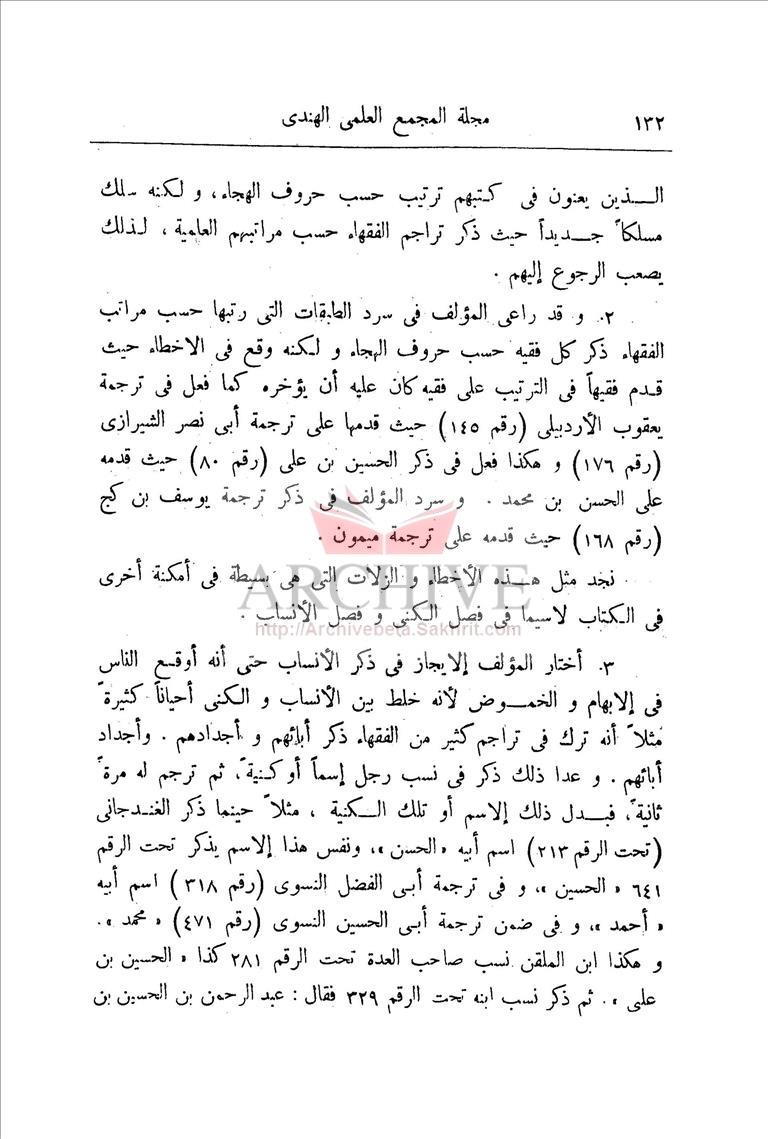 ١٣٢ مجلة المجمع العلمى الهندى
الـــذين يعنون فى كـتبهم ترتيب حسب حروف الهجاء، و لـكنه سلك
مسلكاً جـــديداً حيث ذكر تراجم الفقهاء حسب مراتبهم العلمية ، لـذلك
يصعب الرجوع إليهم .
٢. و قد راعى المؤلف فى سرد الطبقات التى رتبها حسب مراتب
الفقهاء ذكر كل فقيه حسب حروف الهجاء و لـكنه وقع فى الاخطاء حيث
قـدم فقيهاً فى الترتيب على فقيه كان عليه أن يؤخره كما فعل فى ترجمة
يعقوب الأردبيلى (رقم ١٤٥) حيث قدمها على ترجمة أبى نصر الشيرازى
(رقم ١٧٦) و هكذا فعل فى ذكر الحسين بن على (رقم ٨٠) حيث قدمه
على الحسن بن محمد . و سرد المؤلف فى ذكر ترجمة يوسف بن كج
(رقم ١٦٨) حيث قدمه على ترجمة ميمون .
نجد مثل هـــذه الأخطاء و الزلات التى هى بسيطة فى أمكنة أخرى
فى الـكتاب لاسيما فى فصل الـكنى و فصل الأنساب .
ARCHIVE
http://Archivebeta.Sakhrit.com
٣. أختار المؤلف إلايجاز فى ذكر الأنساب حتى أنه أوقـع الناس
فى إلابهام و الخمـــوض لأنه خلط بين الأنساب و الـكنى أحياناً كثيرة ً
مثلاً أنه ترك فى تراجم كثير من الفقهاء ذكر أبائهم و أجدادهم . وأجداد
أبائهم . و عدا ذلك ذكر فى نسب رجل إسماً أو كـنية ً، ثم ترجم له مرة ً
ثانية ً، فبـدل ذلك إلاسم أو تلك الـــكنية ، مثلاً حينما ذكر الغنـدجانى
(تحت الرقم ٢١٣) اسم أبيه «الحسن »، ونفس هذا إلاسم يذكر تحت الرقم
٦٤١ « الحسين »، و فى ترجمة أبـى الفضل النسوى (رقم ٣١٨) اسم أبيه
« أحمد »، و فى ضمن ترجمة أبـى الحسين النسوى (رقم ٤٧١) « محمد ».
و هكذا ابن الملقن نسب صاحب العدة تحت الرقم ٢٨١ كذا « الحسين بن
على ». ثم ذكر نسب ابنه تحت الرقم ٣٢٩ فقال : عبد الرحمون بن الحسين بن